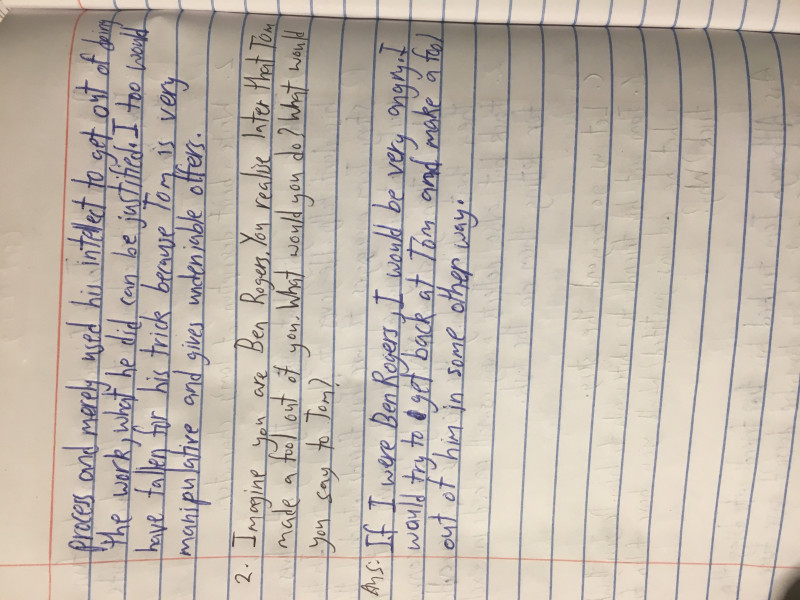 process and merely used his intellect to get out of doing
the work, what he did can be justified. I too would
have fallen for his trick because Tom is very
manipulative and gives undeniable offers.
2. Imagine you are Ben Rogers. You realise later that Tom
made a fool out of you. What would you do? What would
you say to Tom?
Ans: If I were Ben Rogers, I would be very angry. I
would try to get back at Tom and make a fool
out of him in some other way.